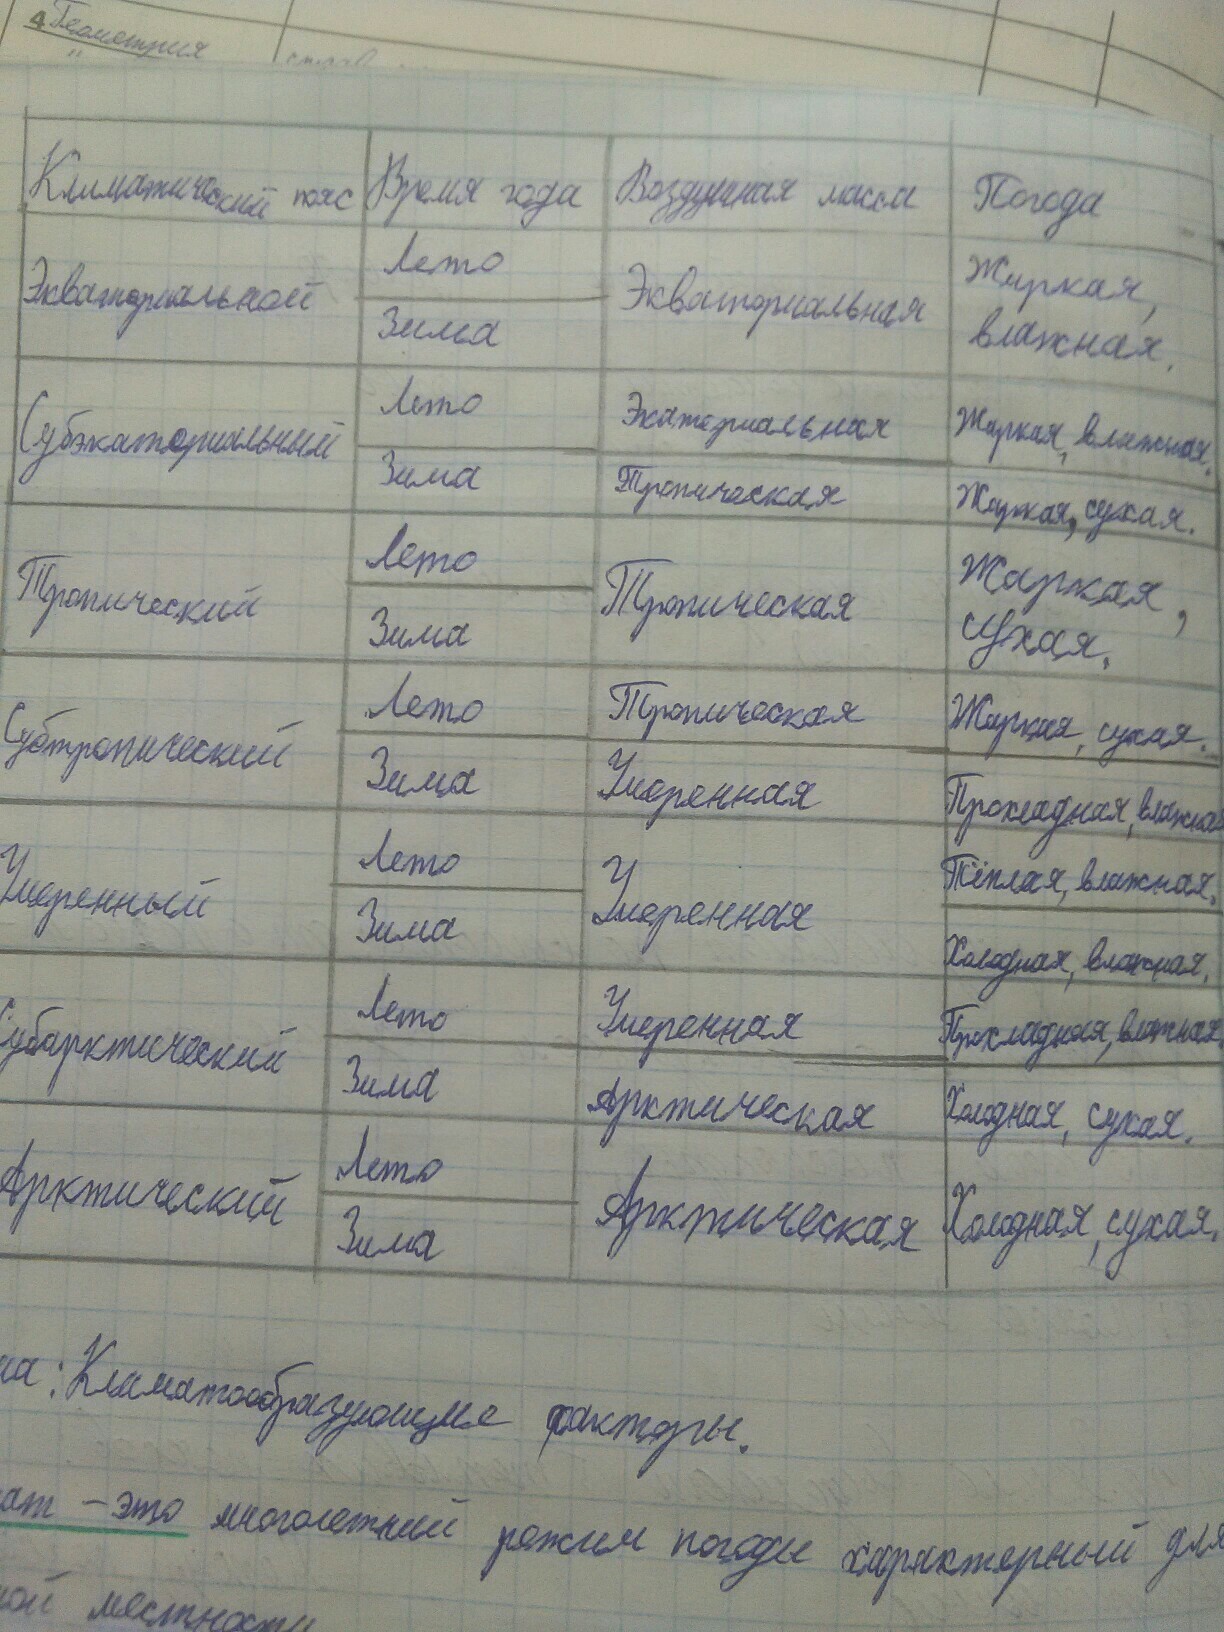 4 Геометрия
Климатический пояс Время года Воздушная масса Погода
Экваториальной Лето Экваториальная Жаркая,
Зима влажная.
Субэкаториальный Лето Экаториальная Жаркая, влажная.
Зима Тропическая Жаркая, сухая.
Тропический Лето Тропическая Жаркая,
Зима сухая.
Субтропический Лето Тропическая Жаркая, сухая.
Зима Умеренная Прохладная, влажная
Умеренный Лето Умеренная Тёплая, влажная.
Зима Холодная, влажная.
Субарктический Лето Умеренная Прохладная, влажная.
Зима Арктическая Холодная, сухая.
Арктический Лето Арктическая Холодная, сухая.
Зима
ма: Климатообразующие факторы.
ат - это многолетний режим погоды характерный для
ной местности